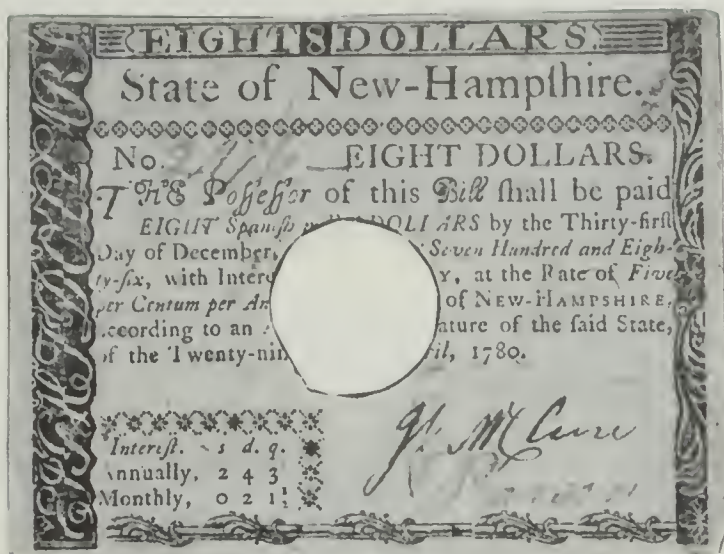 EIGHT 8 DOLLARS.
State of New-Hampſhire.
No. EIGHT DOLLARS.
THE Poſſeſſor of this Bill ſhall be paid
EIGHT Spaniſh DOLLARS by the Thirty-firſt
Day of December, Seven Hundred and Eigh-
ty-ſix, with Intere y, at the Rate of Five
per Centum per An of NEW-HAMPSHIRE,
ccording to an ature of the ſaid State,
of the Twenty-nin ril, 1780.
Intereſt. s d. q.
Annually, 2 4 3
Monthly, 0 2 1½